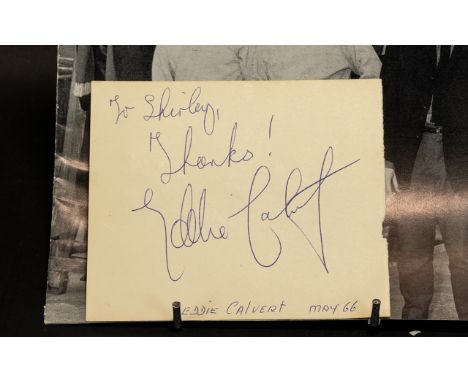 To Shirley,
Thanks!
Eddie Calvert
EDDIE CALVERT MAY 66